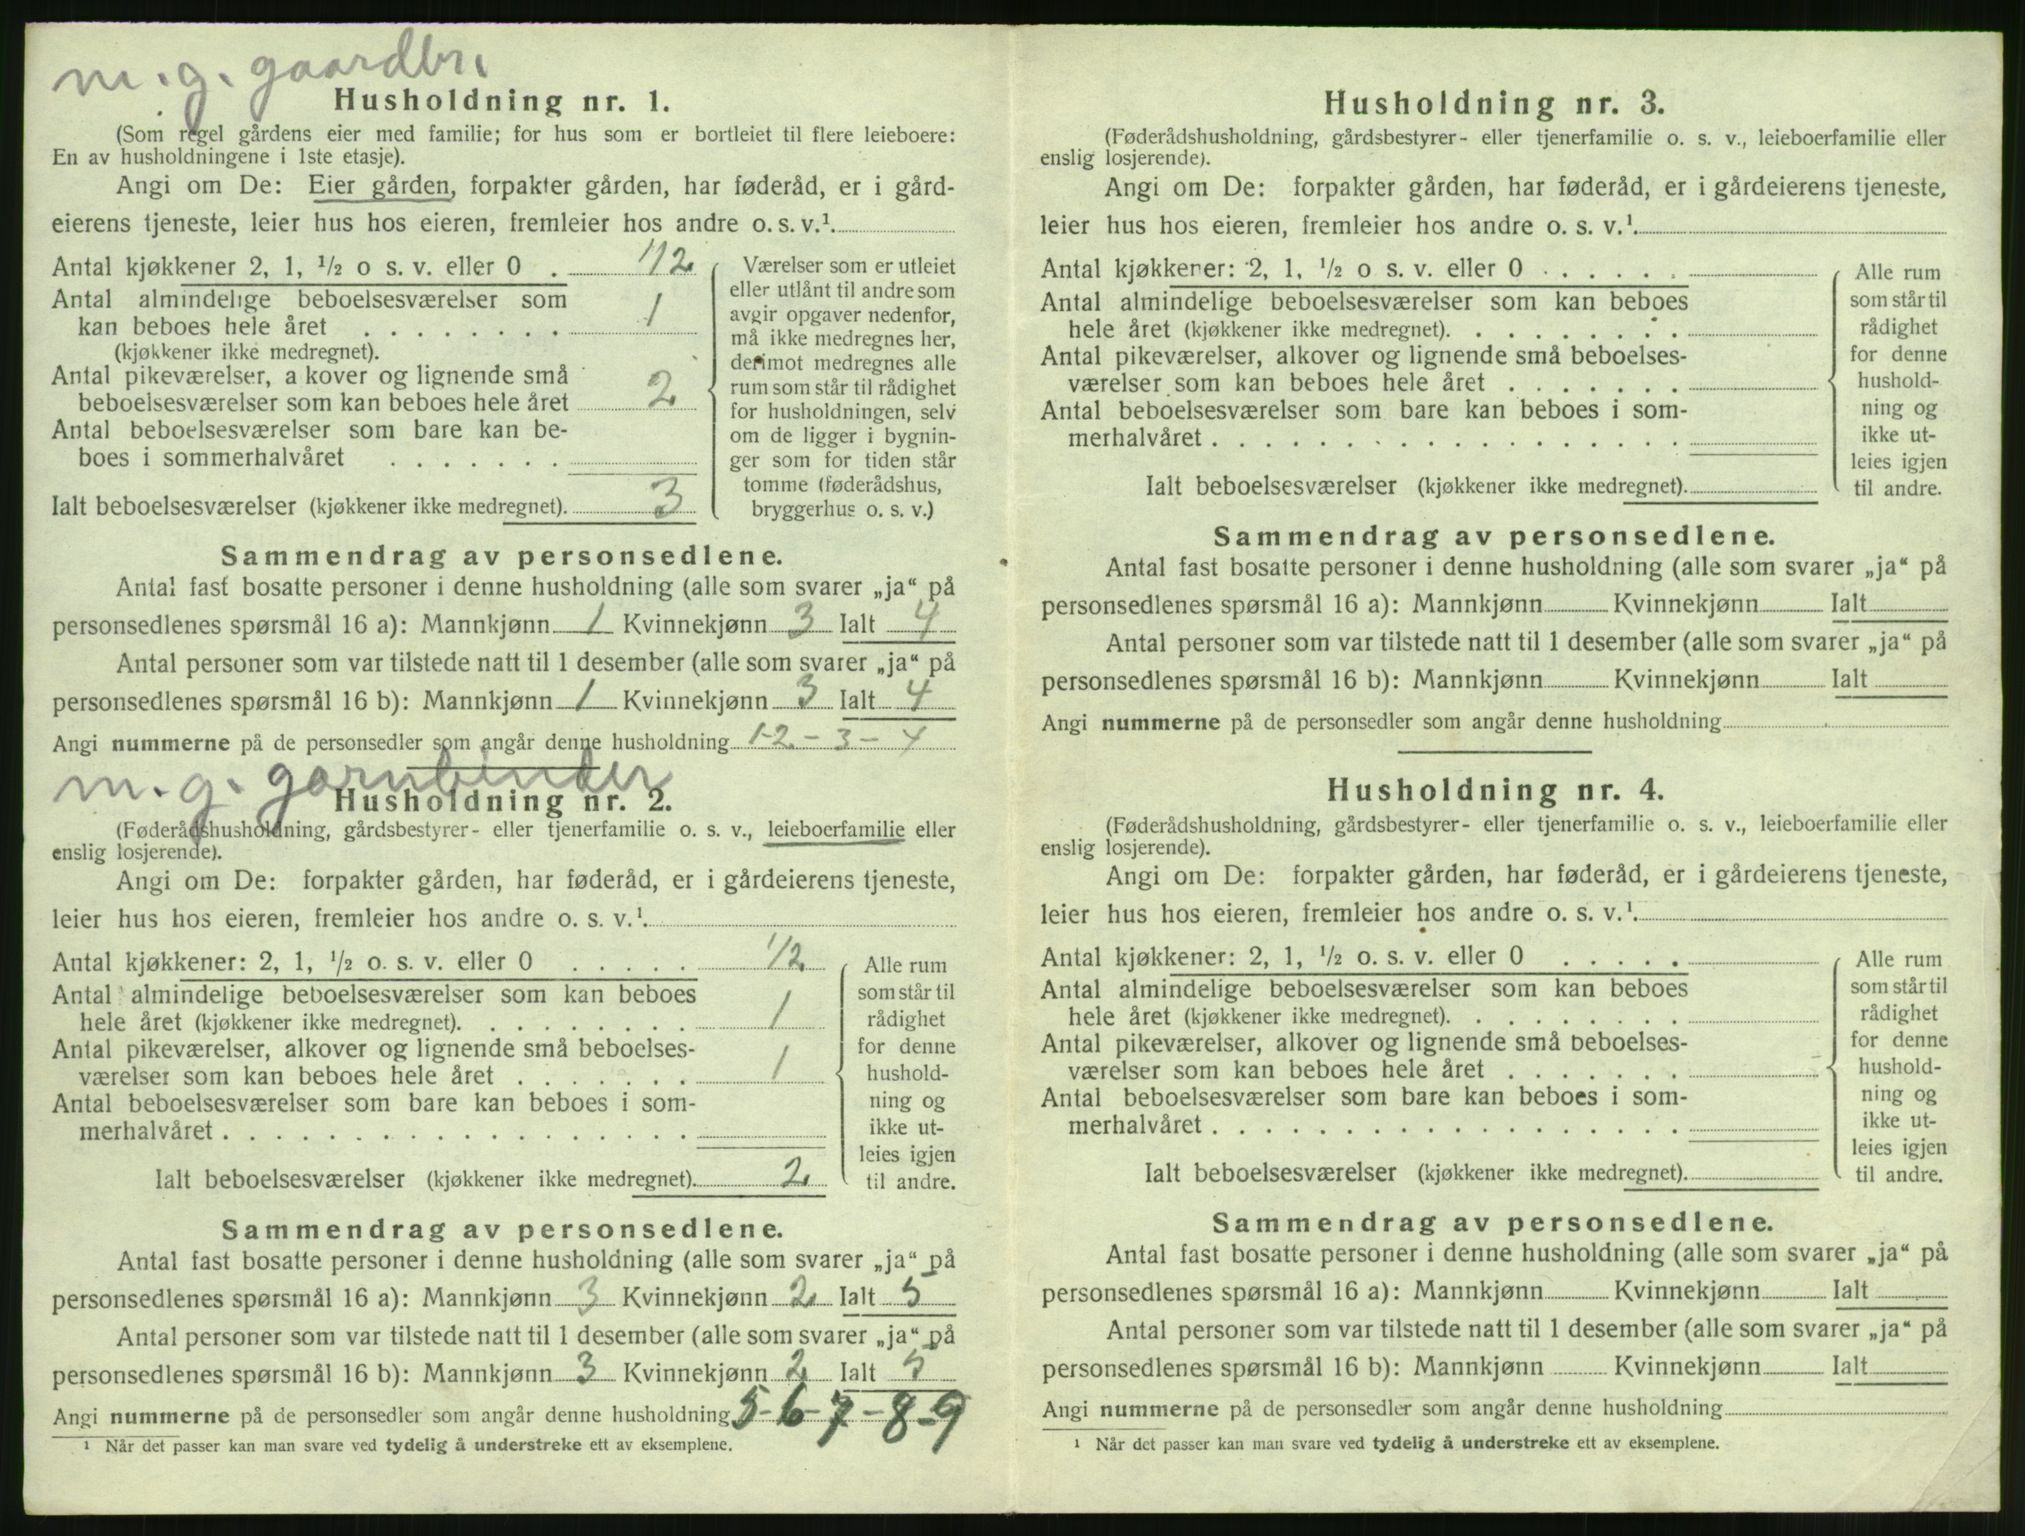 m.g. gaardbr.
Husholdning nr. 1.
(Som regel gårdens eier med familie; for hus som er bortleiet til flere leieboere:
En av husholdningene i 1ste etasje).
Angi om De: Eier gården, forpakter gården, har føderåd, er i gård-
eierens tjeneste, leier hus hos eieren, fremleier hos andre o. s. v.¹
Antal kjøkkener 2, 1, ½ o s. v. eller 0 . 1/2
Antal almindelige beboelsesværelser som
kan beboes hele året . . . . . . . . 1
(kjøkkener ikke medregnet).
Antal pikeværelser, a kover og lignende små
beboelsesværelser som kan beboes hele året 2
Antal beboelsesværelser som bare kan be-
boes i sommerhalvåret . . . . . . .
Ialt beboelsesværelser (kjøkkener ikke medregnet). 3
Værelser som er utleiet
eller utlånt til andre som
avgir opgaver nedenfor,
må ikke medregnes her,
derimot medregnes alle
rum som står til rådighet
for husholdningen, selv
om de ligger i bygnin-
ger som for tiden står
tomme (føderådshus,
bryggerhus o. s. v.)
Sammendrag av personsedlene.
Antal fast bosatte personer i denne husholdning (alle som svarer „ja“ på
personsedlenes spørsmål 16 a): Mannkjønn 1 Kvinnekjønn 3 Ialt 4
Antal personer som var tilstede natt til 1 desember (alle som svarer „ja“ på
personsedlenes spørsmål 16 b): Mannkjønn 1 Kvinnekjønn 3 Ialt 4
Angi nummerne på de personsedler som angår denne husholdning 1-2-3-4
m.g. garnbinder
Husholdning nr. 2.
(Føderådshusholdning, gårdsbestyrer- eller tjenerfamilie o. s. v., leieboerfamilie eller
enslig losjerende).
Angi om De: forpakter gården, har føderåd, er i gårdeierens tjeneste,
leier hus hos eieren, fremleier hos andre o. s. v.¹
Antal kjøkkener: 2, 1, ½ o. s. v. eller 0 . . . . . 1/2
Antal almindelige beboelsesværelser som kan beboes
hele året (kjøkkener ikke medregnet). . . . . . . . . 1
Antal pikeværelser, alkover og lignende små beboelses-
værelser som kan beboes hele året . . . . . . . 1
Antal beboelsesværelser som bare kan beboes i som-
merhalvåret . . . . . . . . . . . . . . . . . .
Ialt beboelsesværelser (kjøkkener ikke medregnet). 2
Alle rum
som står til
rådighet
for denne
hushold-
ning og
ikke ut-
leies igjen
til andre.
Sammendrag av personsedlene.
Antal fast bosatte personer i denne husholdning (alle som svarer „ja“ på
personsedlenes spørsmål 16 a): Mannkjønn 3 Kvinnekjønn 2 Ialt 5
Antal personer som var tilstede natt til 1 desember (alle som svarer „ja“ på
personsedlenes spørsmål 16 b): Mannkjønn 3 Kvinnekjønn 2 Ialt 5
Angi nummerne på de personsedler som angår denne husholdning 5-6-7-8-9
¹ Når det passer kan man svare ved tydelig å understreke ett av eksemplene.
Husholdning nr. 3.
(Føderådshusholdning, gårdsbestyrer- eller tjenerfamilie o. s. v., leieboerfamilie eller
enslig losjerende).
Angi om De: forpakter gården, har føderåd, er i gårdeierens tjeneste,
leier hus hos eieren, fremleier hos andre o. s. v.¹
Antal kjøkkener: 2, 1, ½ o s. v. eller 0 . . . . . .
Antal almindelige beboelsesværelser som kan beboes
hele året (kjøkkener ikke medregnet). . . . . . . . .
Antal pikeværelser, alkover og lignende små beboelses-
værelser som kan beboes hele året . . . . . . .
Antal beboelsesværelser som bare kan beboes i som-
merhalvåret . . . . . . . . . . . . . . . . . .
Ialt beboelsesværelser (kjøkkener ikke medregnet).
Alle rum
som står til
rådighet
for denne
hushold-
ning og
ikke ut-
leies igjen
til andre.
Sammendrag av personsedlene.
Antal fast bosatte personer i denne husholdning (alle som svarer „ja“ på
personsedlenes spørsmål 16 a): Mannkjønn Kvinnekjønn Ialt
Antal personer som var tilstede natt til 1 desember (alle som svarer „ja“ på
personsedlenes spørsmål 16 b): Mannkjønn Kvinnekjønn Ialt
Angi nummerne på de personsedler som angår denne husholdning
Husholdning nr. 4.
(Føderådshusholdning, gårdsbestyrer- eller tjenerfamilie o. s. v., leieboerfamilie eller
enslig losjerende).
Angi om De: forpakter gården, har føderåd, er i gårdeierens tjeneste,
leier hus hos eieren, fremleier hos andre o. s. v.¹
Antal kjøkkener: 2, 1, ½ o. s. v. eller 0 . . . . .
Antal almindelige beboelsesværelser som kan beboes
hele året (kjøkkener ikke medregnet). . . . . . . . .
Antal pikeværelser, alkover og lignende små beboelses-
værelser som kan beboes hele året . . . . . . .
Antal beboelsesværelser som bare kan beboes i som-
merhalvåret . . . . . . . . . . . . . . . . . .
Ialt beboelsesværelser (kjøkkener ikke medregnet).
Alle rum
som står til
rådighet
for denne
hushold-
ning og
ikke ut-
leies igjen
til andre.
Sammendrag av personsedlene.
Antal fast bosatte personer i denne husholdning (alle som svarer „ja“ på
personsedlenes spørsmål 16 a): Mannkjønn Kvinnekjønn Ialt
Antal personer som var tilstede natt til 1 desember (alle som svarer „ja“ på
personsedlenes spørsmål 16 b): Mannkjønn Kvinnekjønn Ialt
Angi nummerne på de personsedler som angår denne husholdning
¹ Når det passer kan man svare ved tydelig å understreke ett av eksemplene.